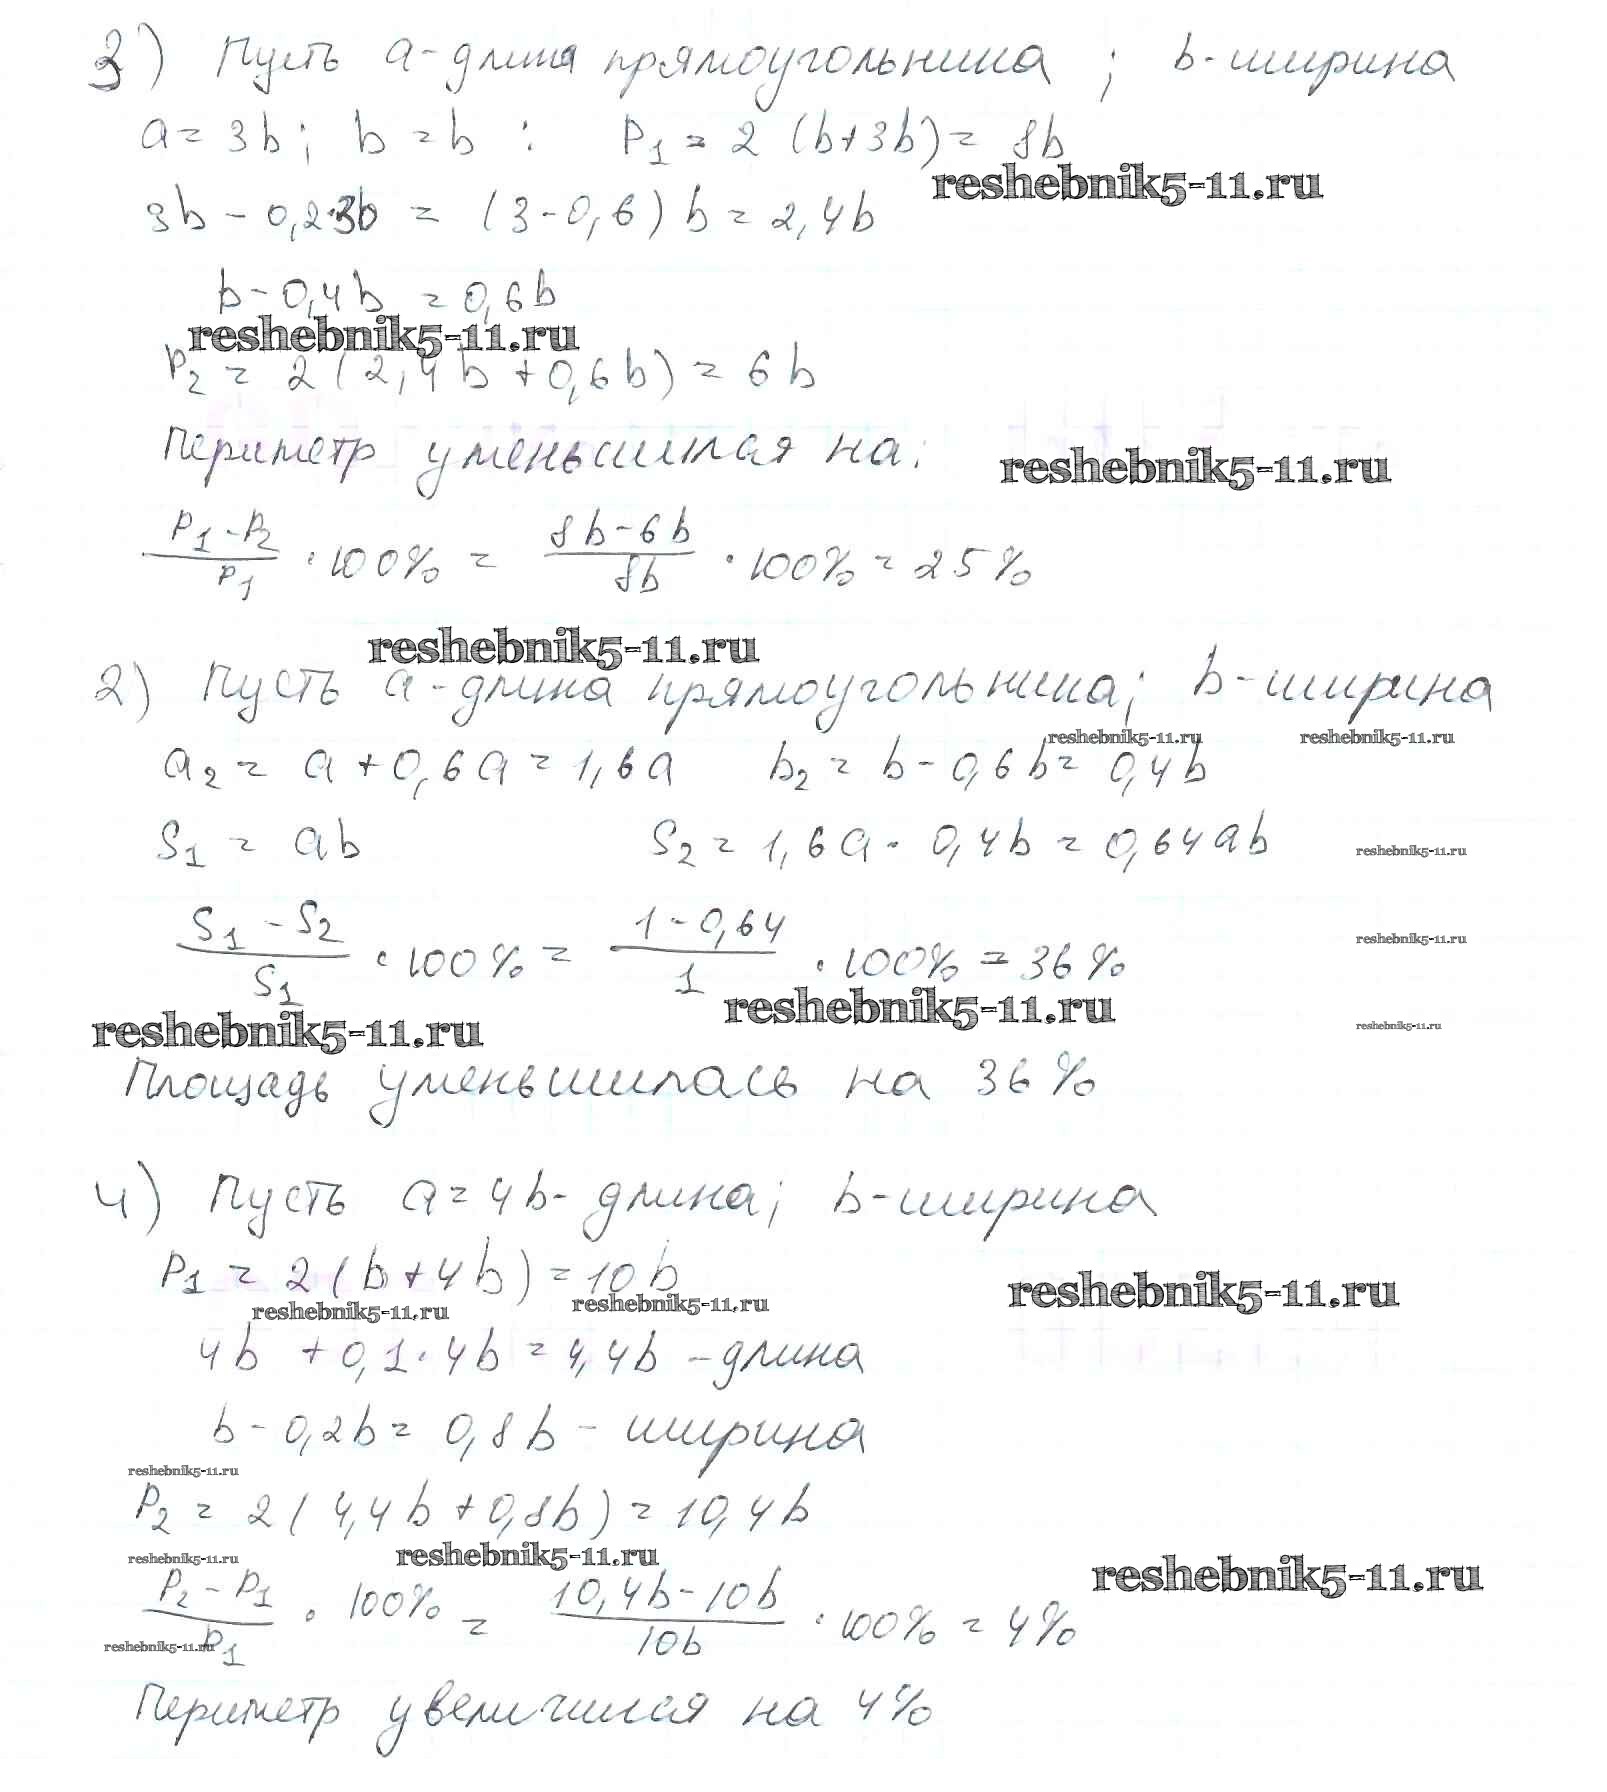 3) Пусть a-длина прямоугольника ; b-ширина
a = 3b ; b = b : P1 = 2 (b+3b) = 8b
reshebnik5-11.ru
3b - 0,2·3b = (3-0,6) b = 2,4b
b - 0,4b = 0,6b
reshebnik5-11.ru
P2 = 2 (2,4b + 0,6b) = 6b
Периметр уменьшился на:
reshebnik5-11.ru
P1 - P2 / P1 · 100% = 8b - 6b / 8b · 100% = 25%
reshebnik5-11.ru
2) Пусть a-длина прямоугольника; b-ширина
reshebnik5-11.ru reshebnik5-11.ru
a2 = a + 0,6a = 1,6a b2 = b - 0,6b = 0,4b
S1 = ab S2 = 1,6a · 0,4b = 0,64ab
reshebnik5-11.ru
S1 - S2 / S1 · 100% = 1 - 0,64 / 1 · 100% = 36%
reshebnik5-11.ru
reshebnik5-11.ru
reshebnik5-11.ru
reshebnik5-11.ru
Площадь уменьшилась на 36%
4) Пусть a = 4b - длина; b-ширина
P1 = 2 (b + 4b) = 10b
reshebnik5-11.ru
reshebnik5-11.ru reshebnik5-11.ru
4b + 0,1 · 4b = 4,4b - длина
b - 0,2b = 0,8b - ширина
reshebnik5-11.ru
P2 = 2 (4,4b + 0,8b) = 10,4b
reshebnik5-11.ru
reshebnik5-11.ru
reshebnik5-11.ru
P2 - P1 / P1 · 100% = 10,4b - 10b / 10b · 100% = 4%
reshebnik5-11.ru
Периметр увеличился на 4%